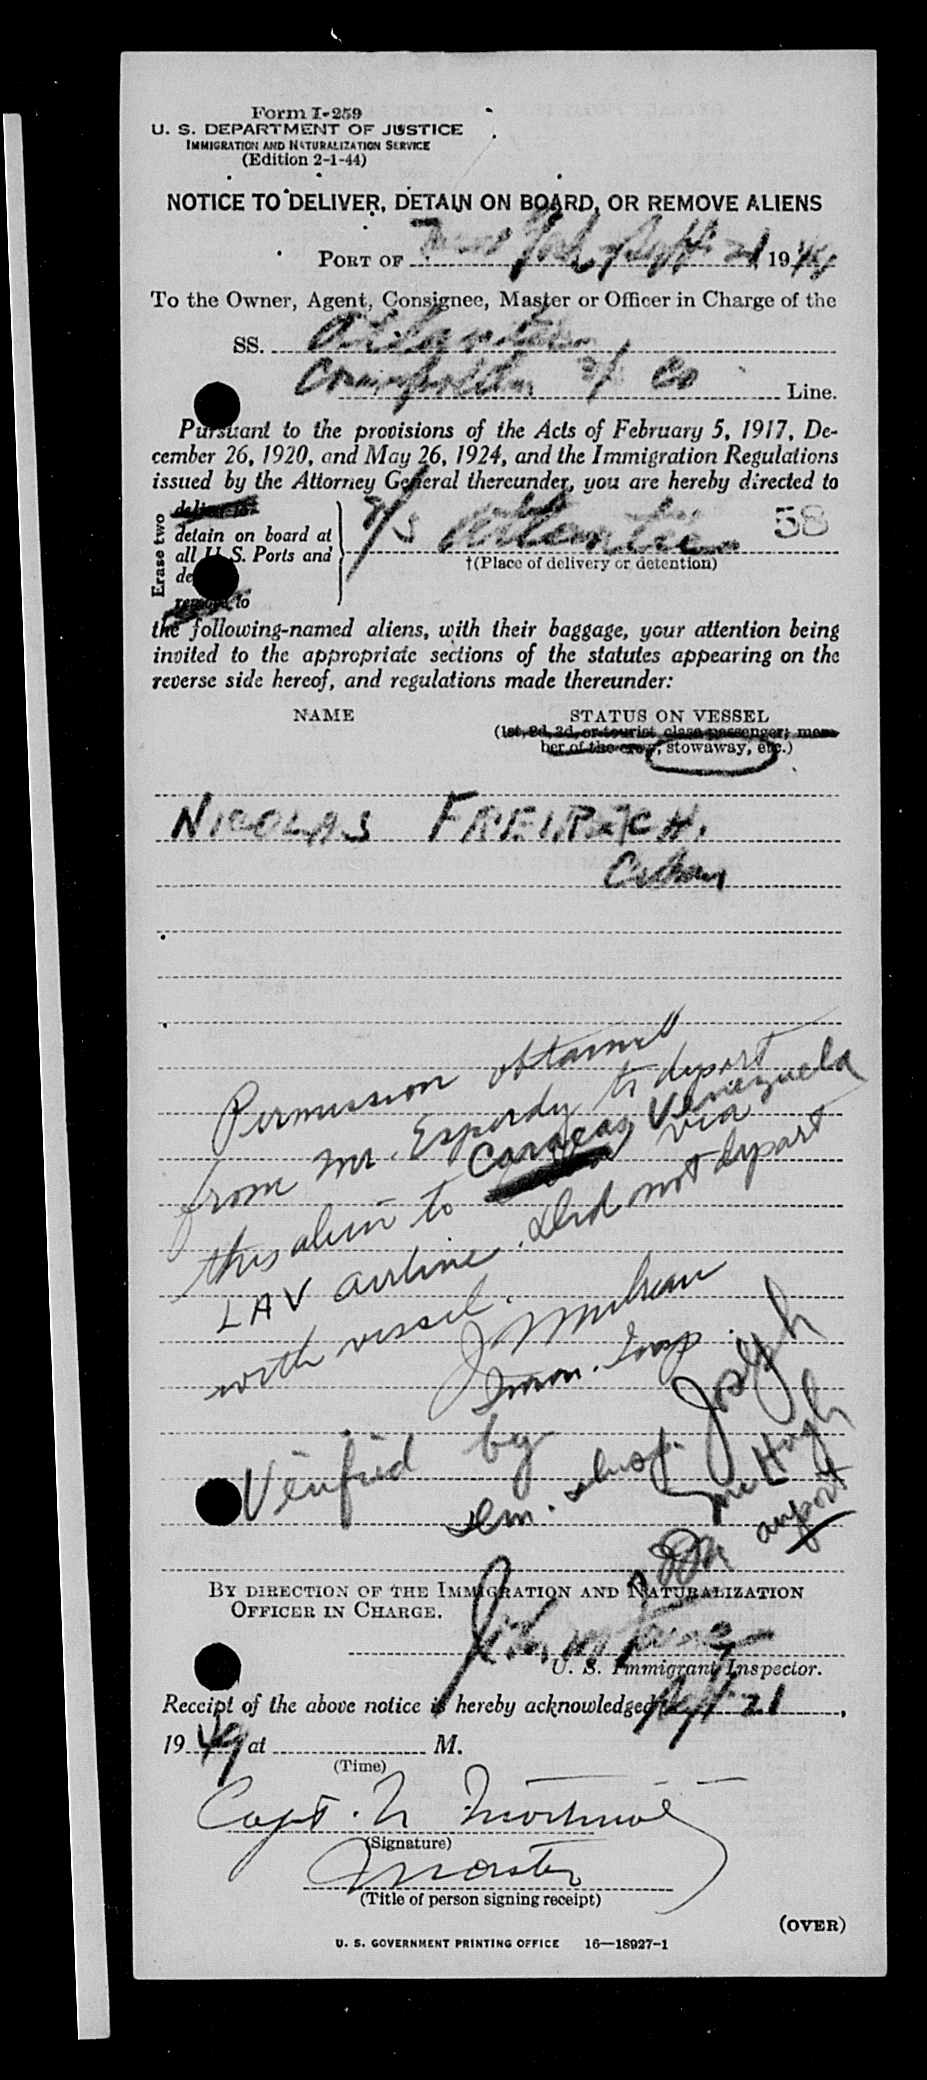 Form I-259
U. S. DEPARTMENT OF JUSTICE
IMMIGRATION AND NATURALIZATION SERVICE
(Edition 2-1-44)
NOTICE TO DELIVER, DETAIN ON BOARD, OR REMOVE ALIENS
PORT OF New York Sept. 21 1949
To the Owner, Agent, Consignee, Master or Officer in Charge of the
SS. Atlantic
S/S Co Line.
Pursuant to the provisions of the Acts of February 5, 1917, De-
cember 26, 1920, and May 26, 1924, and the Immigration Regulations
issued by the Attorney General thereunder, you are hereby directed to
Erase two
deliver to
detain on board at
all U. S. Ports and
remove to
S/S Atlantic 58
†(Place of delivery or detention)
the following-named aliens, with their baggage, your attention being
invited to the appropriate sections of the statutes appearing on the
reverse side hereof, and regulations made thereunder:
NAME STATUS ON VESSEL
(1st, 2d, 3d, or tourist class passenger; mem-
ber of the crew, stowaway, etc.)
NICOLAS FREIREICH.
Permission obtained
from Mr. Esperdy to depart
this alien to Caracas, Venezuela via
LAV airline. Did not depart
with vessel.
J Mulrean
Imm. Insp.
Verified by
Im. Insp. Joseph
McHugh
airport
BY DIRECTION OF THE IMMIGRATION AND NATURALIZATION
OFFICER IN CHARGE.
U. S. Immigrant Inspector.
Receipt of the above notice is hereby acknowledged Sept 21,
1949 at M.
(Time)
Capt. N
(Signature)
Master
(Title of person signing receipt)
(OVER)
U. S. GOVERNMENT PRINTING OFFICE 16—18927-1